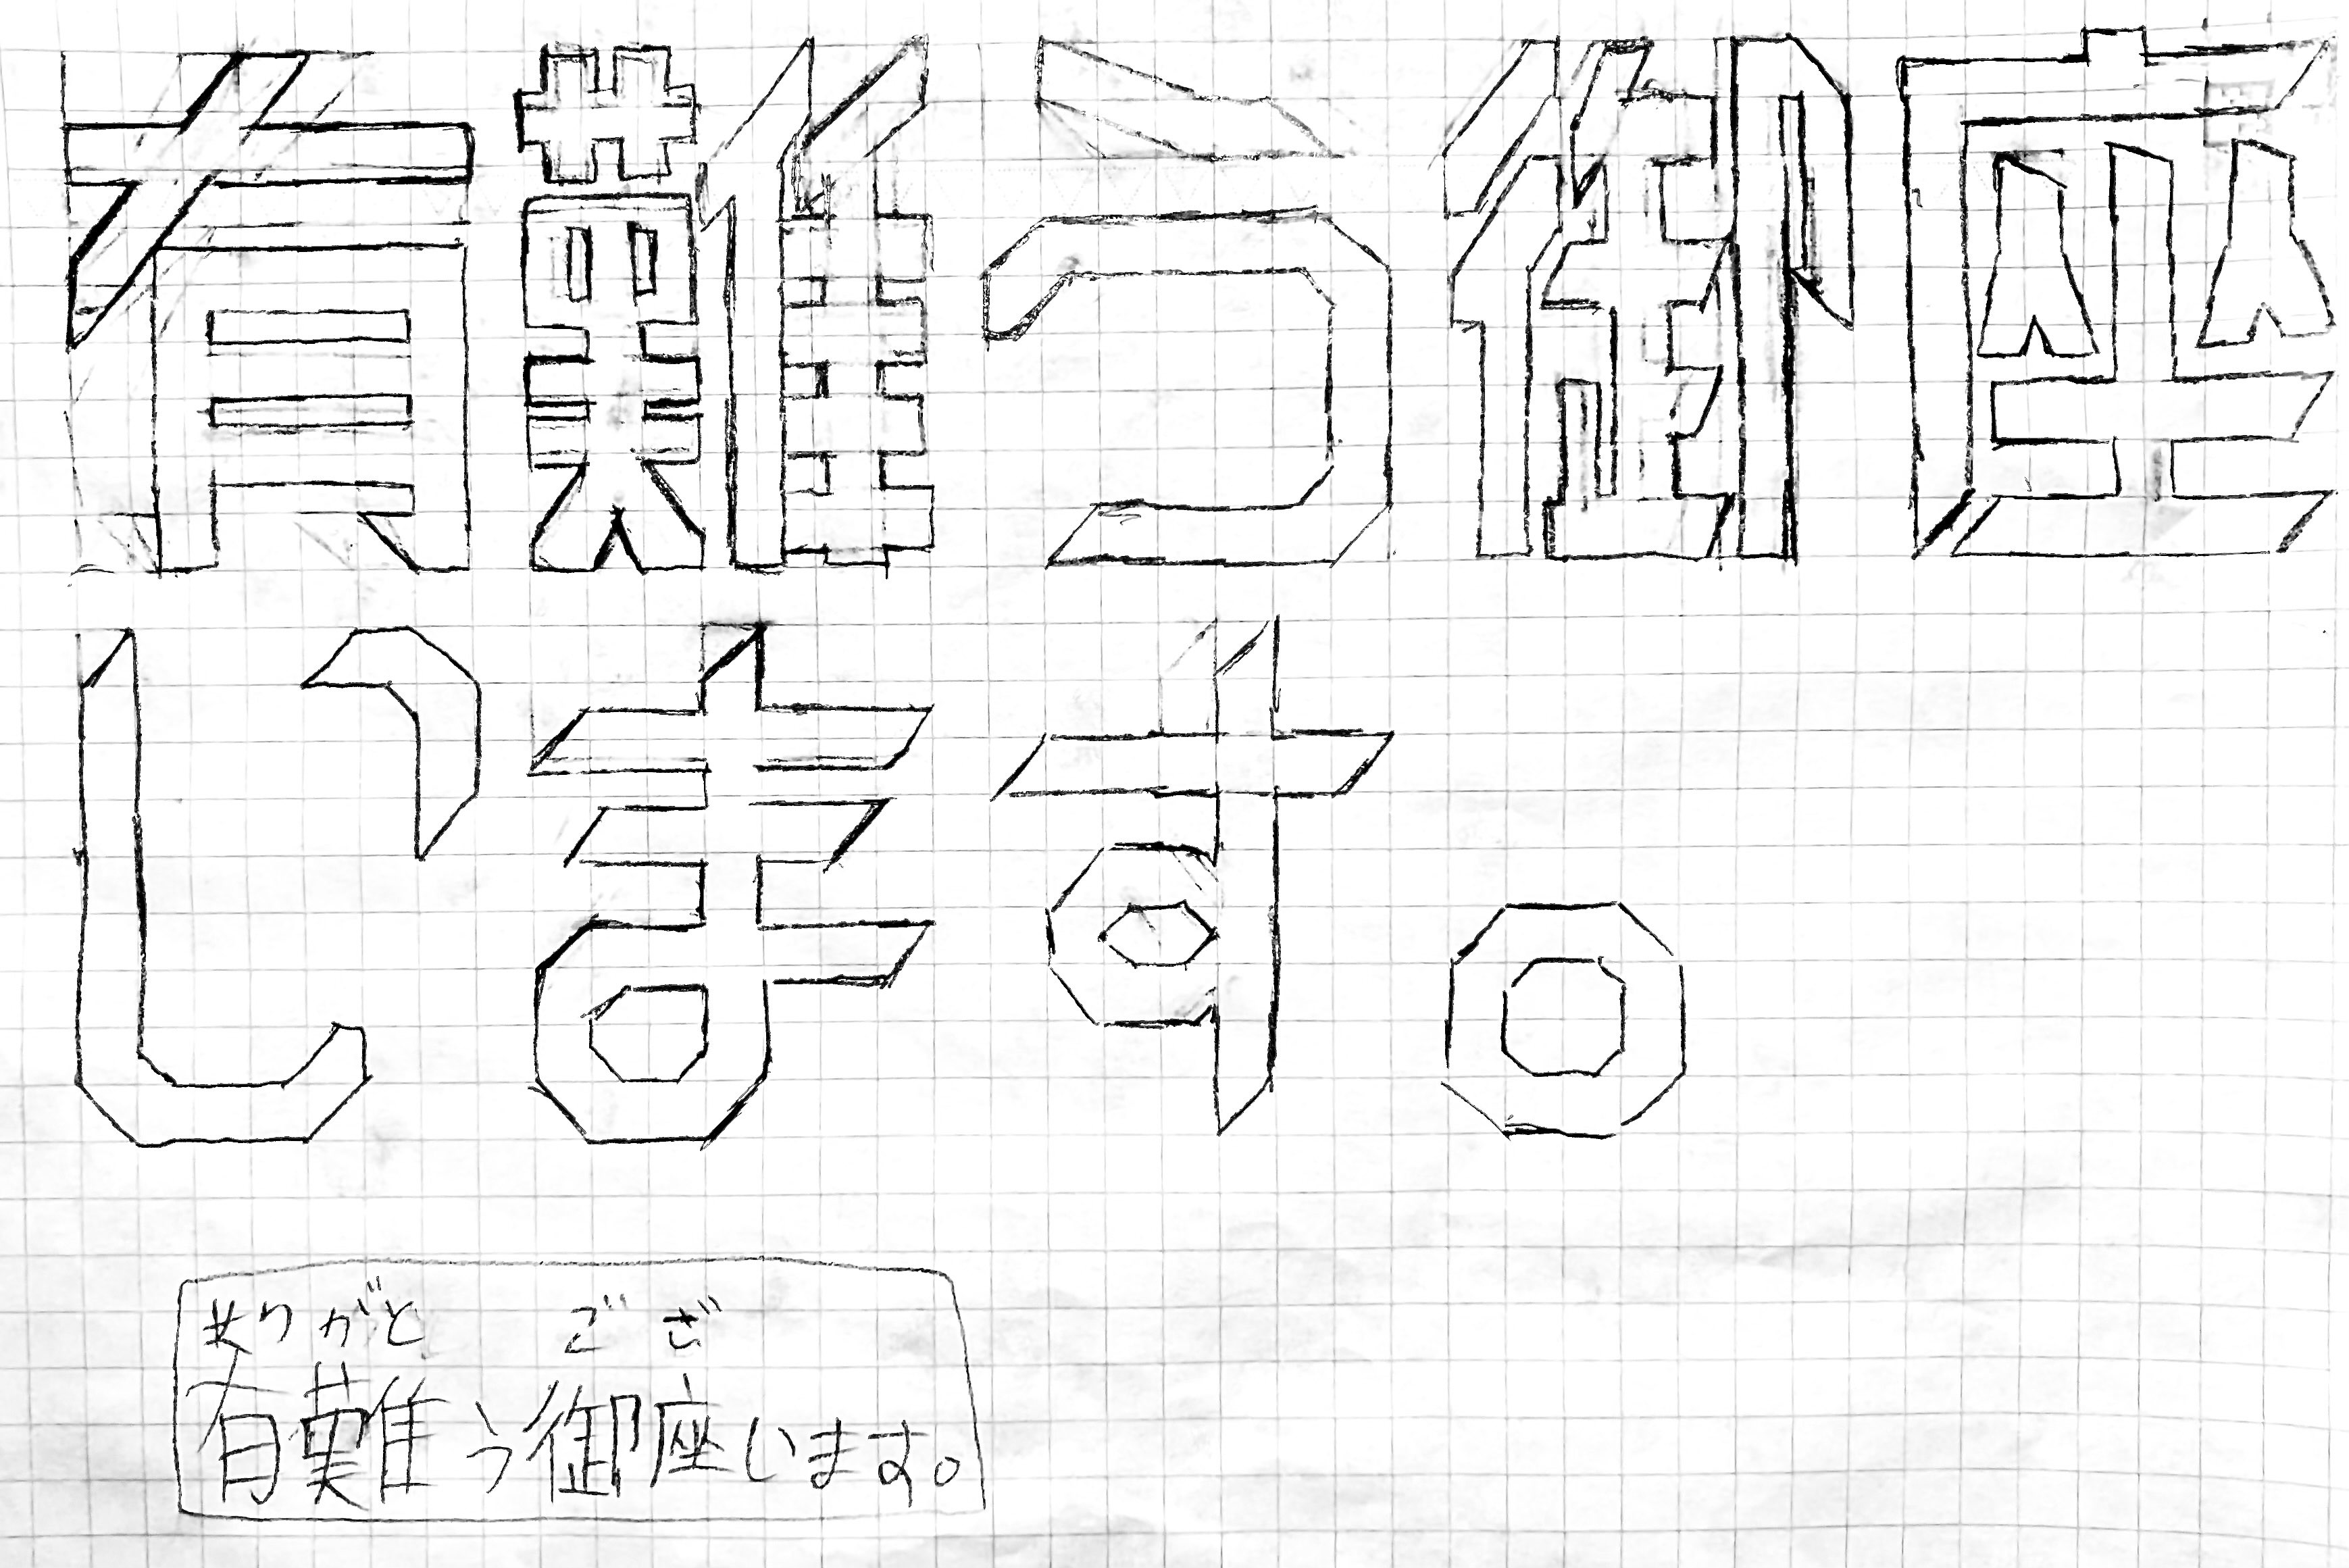 有難う御座
います。
ありがと ござ
有難う御座います。